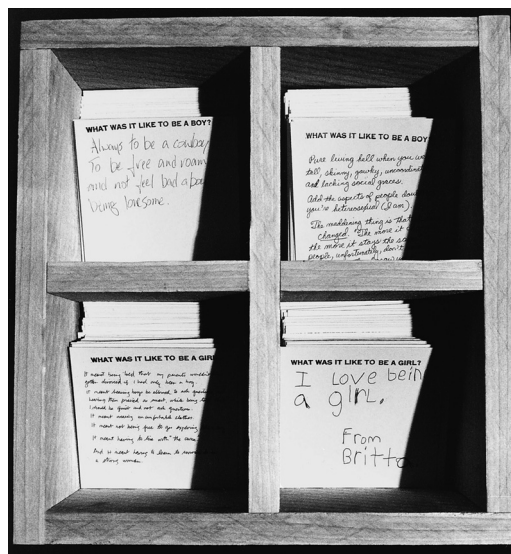 WHAT WAS IT LIKE TO BE A BOY?
Always to be a cowboy
To be free and roam
and not feel bad abou
being lonesome.
WHAT WAS IT LIKE TO BE A BOY
Pure living hell when you we
tall, skinny, gawky, uncoordinat
and lacking social graces.
Add the aspects of people dou
you're heterosexual (I am).
The maddening thing is that
changed. The more it c
the more it stays the sa
people, unfortunately, don't
WHAT WAS IT LIKE TO BE A GIRL
It meant being told that my parents wouldn't
gotten divorced if I had only been a boy.
It meant hearing boys be allowed to ask questions
having them praised as smart, while being to
I should be quiet and not ask questions.
It meant wearing uncomfortable clothes.
It meant not being free to go exploring
It meant having to live with "the curse"
And it meant having to learn to
a strong woman.
WHAT WAS IT LIKE TO BE A GIRL?
I Love bein
a girl.
From
Britta